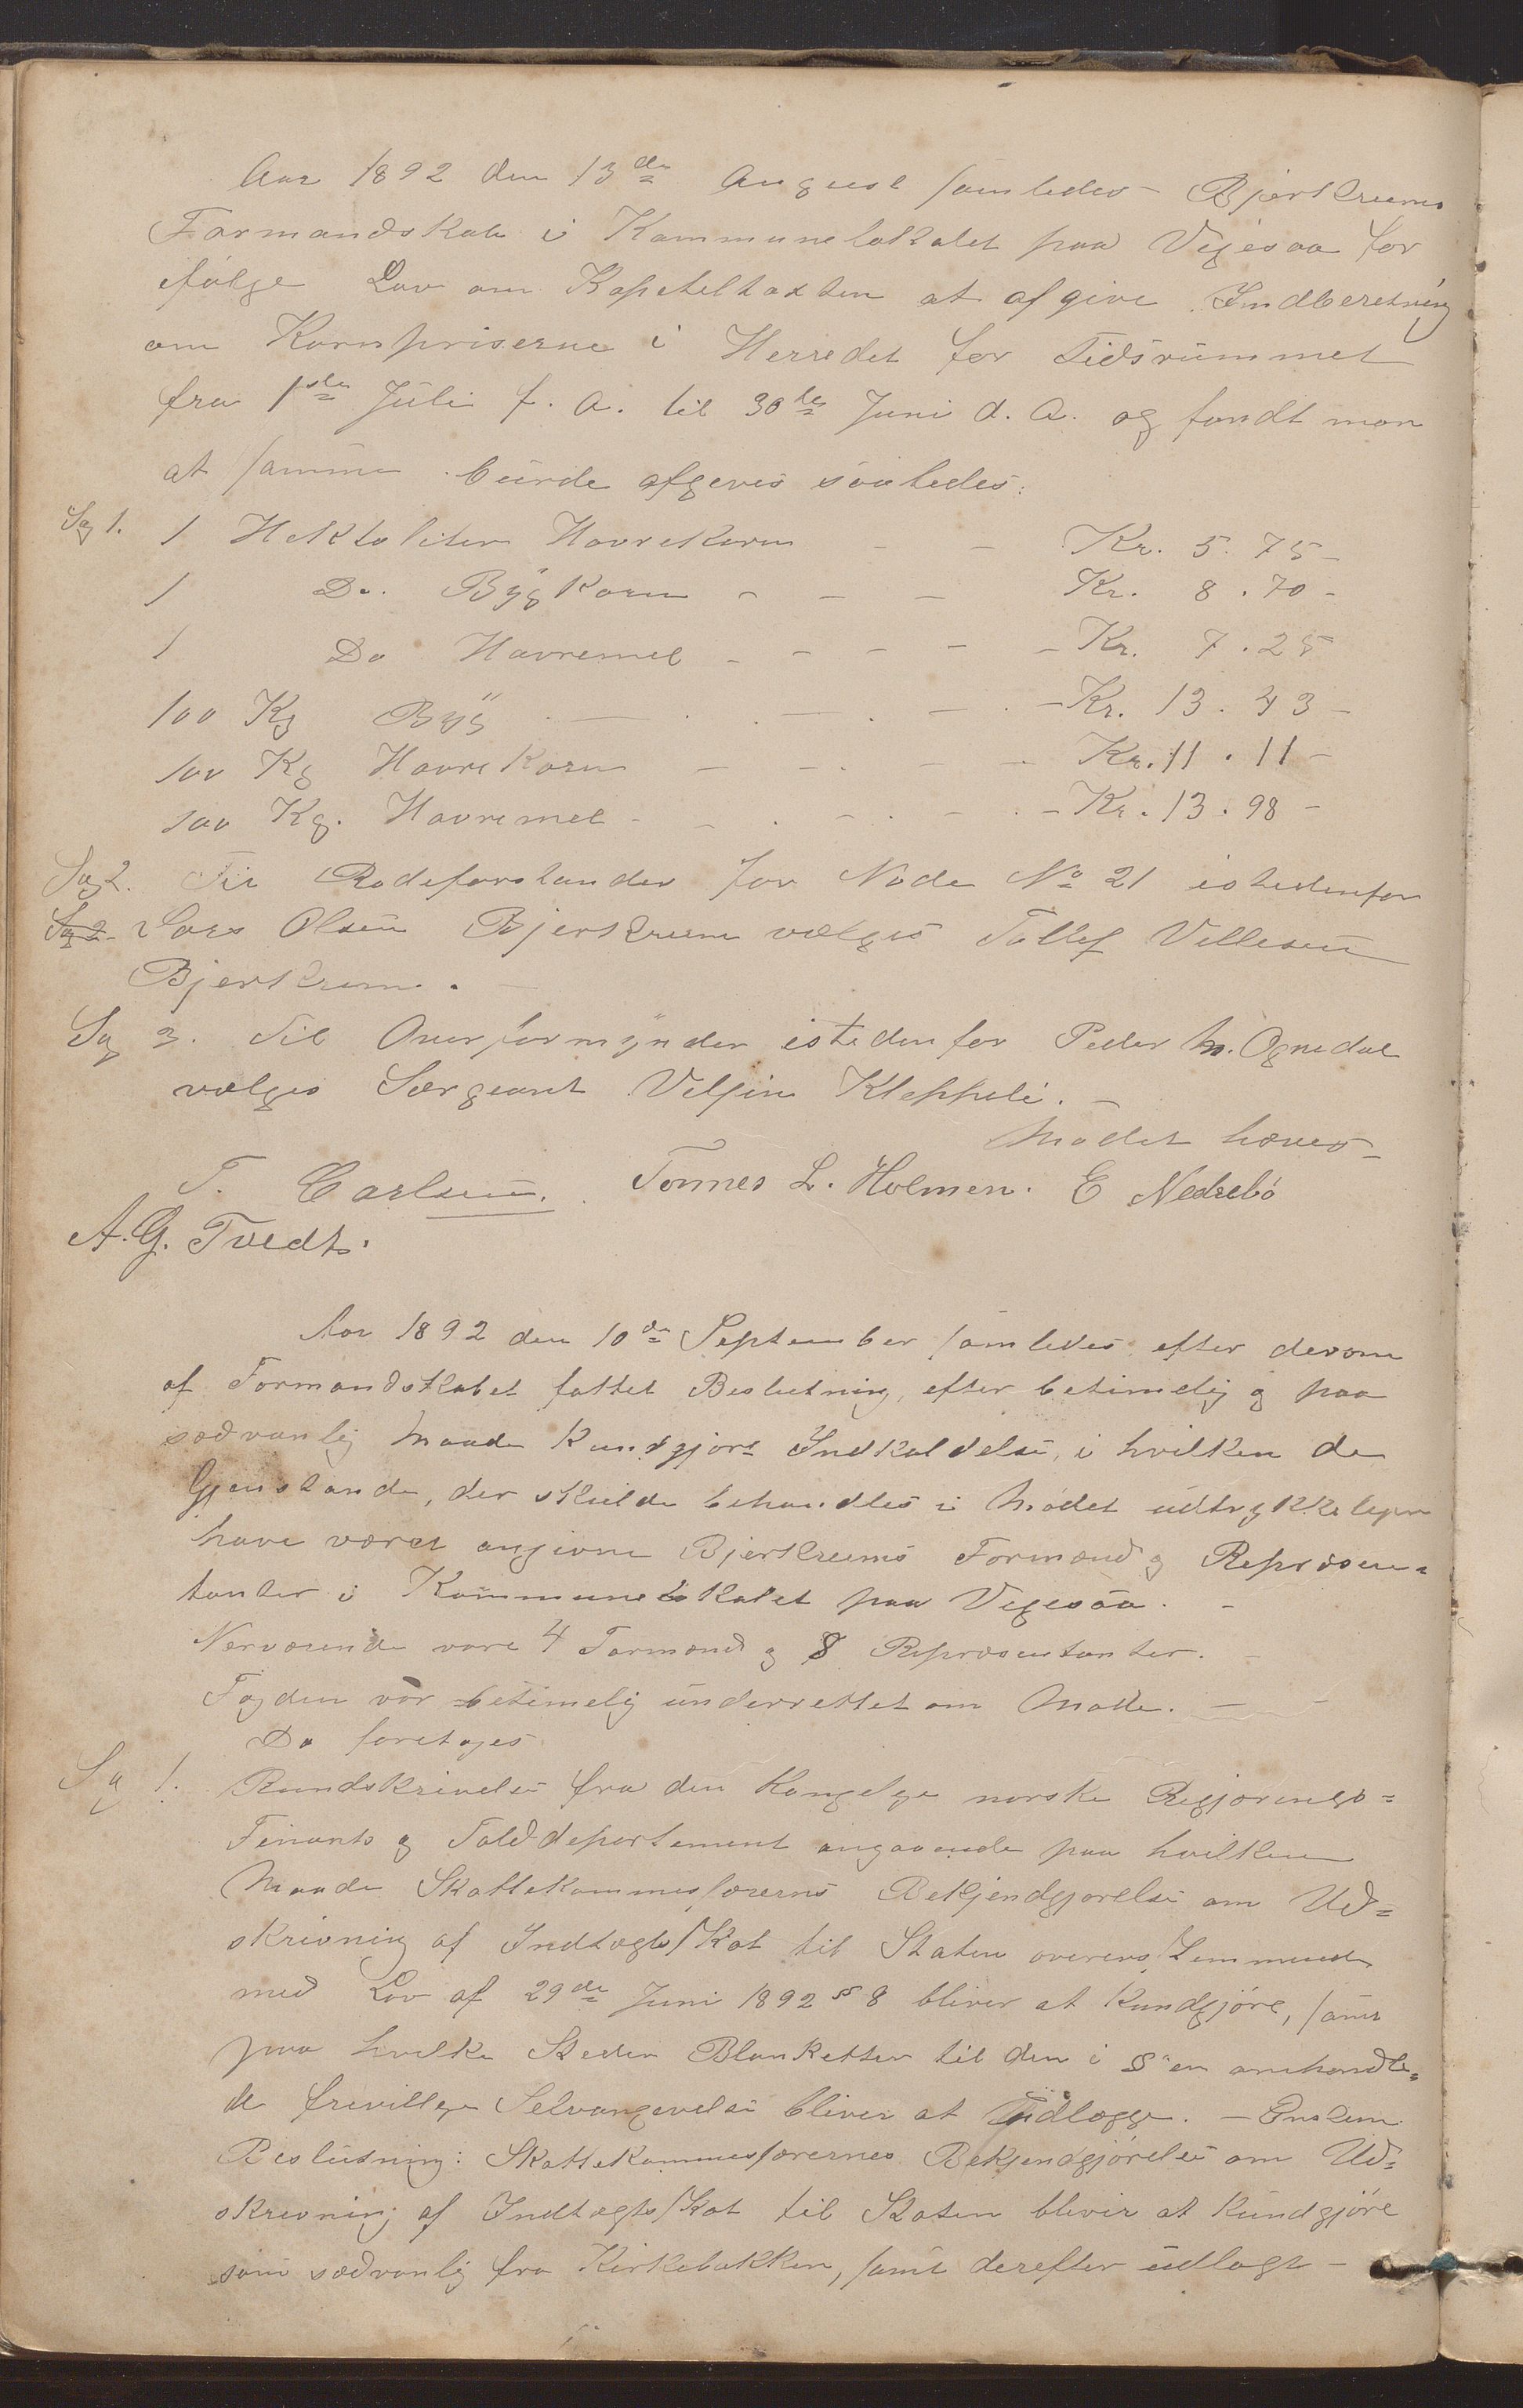 Aar 1892 den 13de August samledes Bjerkreims
Formandskab i Kommunelokalet paa Vigesaa for
ifølge Lov om Kapiteltaxten at afgive Indberetning
om Kornpriserne i Herredet for Tidsrummet
fra 1ste Juli f. A. til 30te Juni d. A. og fandt man
at samme burde afgives saaledes:
Sag 1. 1 Hektoliter Havrekorn - - Kr. 5.75-
1 Do. Bygkorn - - - Kr. 8.70-
1 Do Havremel - - - - - Kr. 7.25
100 Kg Byg - - - Kr. 13.43-
100 Kg Havrekorn - - - - Kr. 11.11-
100 Kg. Havremel - - - - - Kr. 13.98-
Sag 2. Til Rodeforstander for Rode No 21 istedenfor
Sag 2 Lars Olsen Bjerkreim vælges Tollef Villesen
Bjerkreim. -
Sag 3. Til Overformynder istedenfor Peder M. Ognedal
vælges Sergeant Veljin Kleppeli. -
Mødet hæves-
T. Carlsen. Tønnes L. Holmen. E Nedrebø
A. G. Tvedt.
Aar 1892 den 10de September samledes efter derom
af Formandskabet fattet Beslutning, efter betimelig og paa
sædvanlig Maade Kundgjort Indkaldelse, i hvilken de
Gjenstande, der skulde behandles i Mødet udtrykkeligen
have været angivne Bjerkreims Formænd og Repræsen=
tanter i Kommunelokalet paa Vigesaa. -
Nærværende vare 4 Formænd og 8 Repræsentanter. -
Fogden var betimelig underrettet om Møde. - -
Da foretoges
Sag 1. Rundskrivelse fra den Kongelige norske Regjerings=
Finants og Tolddepartement angaaende paa hvilken
Maade Skattekommissærerns Bekjendgjørelse om Ud=
skrivning af Indtægtsskat til Staten overensstemmende
med Lov af 29de Juni 1892 § 8 bliver at Kundgjøre, samt
paa hvilke Steder Blanketter til den i §en omhandle=
de frivillige Selvangivelse bliver at udlægge. - Enstem
Beslutning: Skattekommissærernes Bekjendgjørelse om Ud=
skrivning af Indtægtsskat til Staten bliver at Kundgjøre
som sædvanlig fra Kirkebakken, samt derefter udlagt -